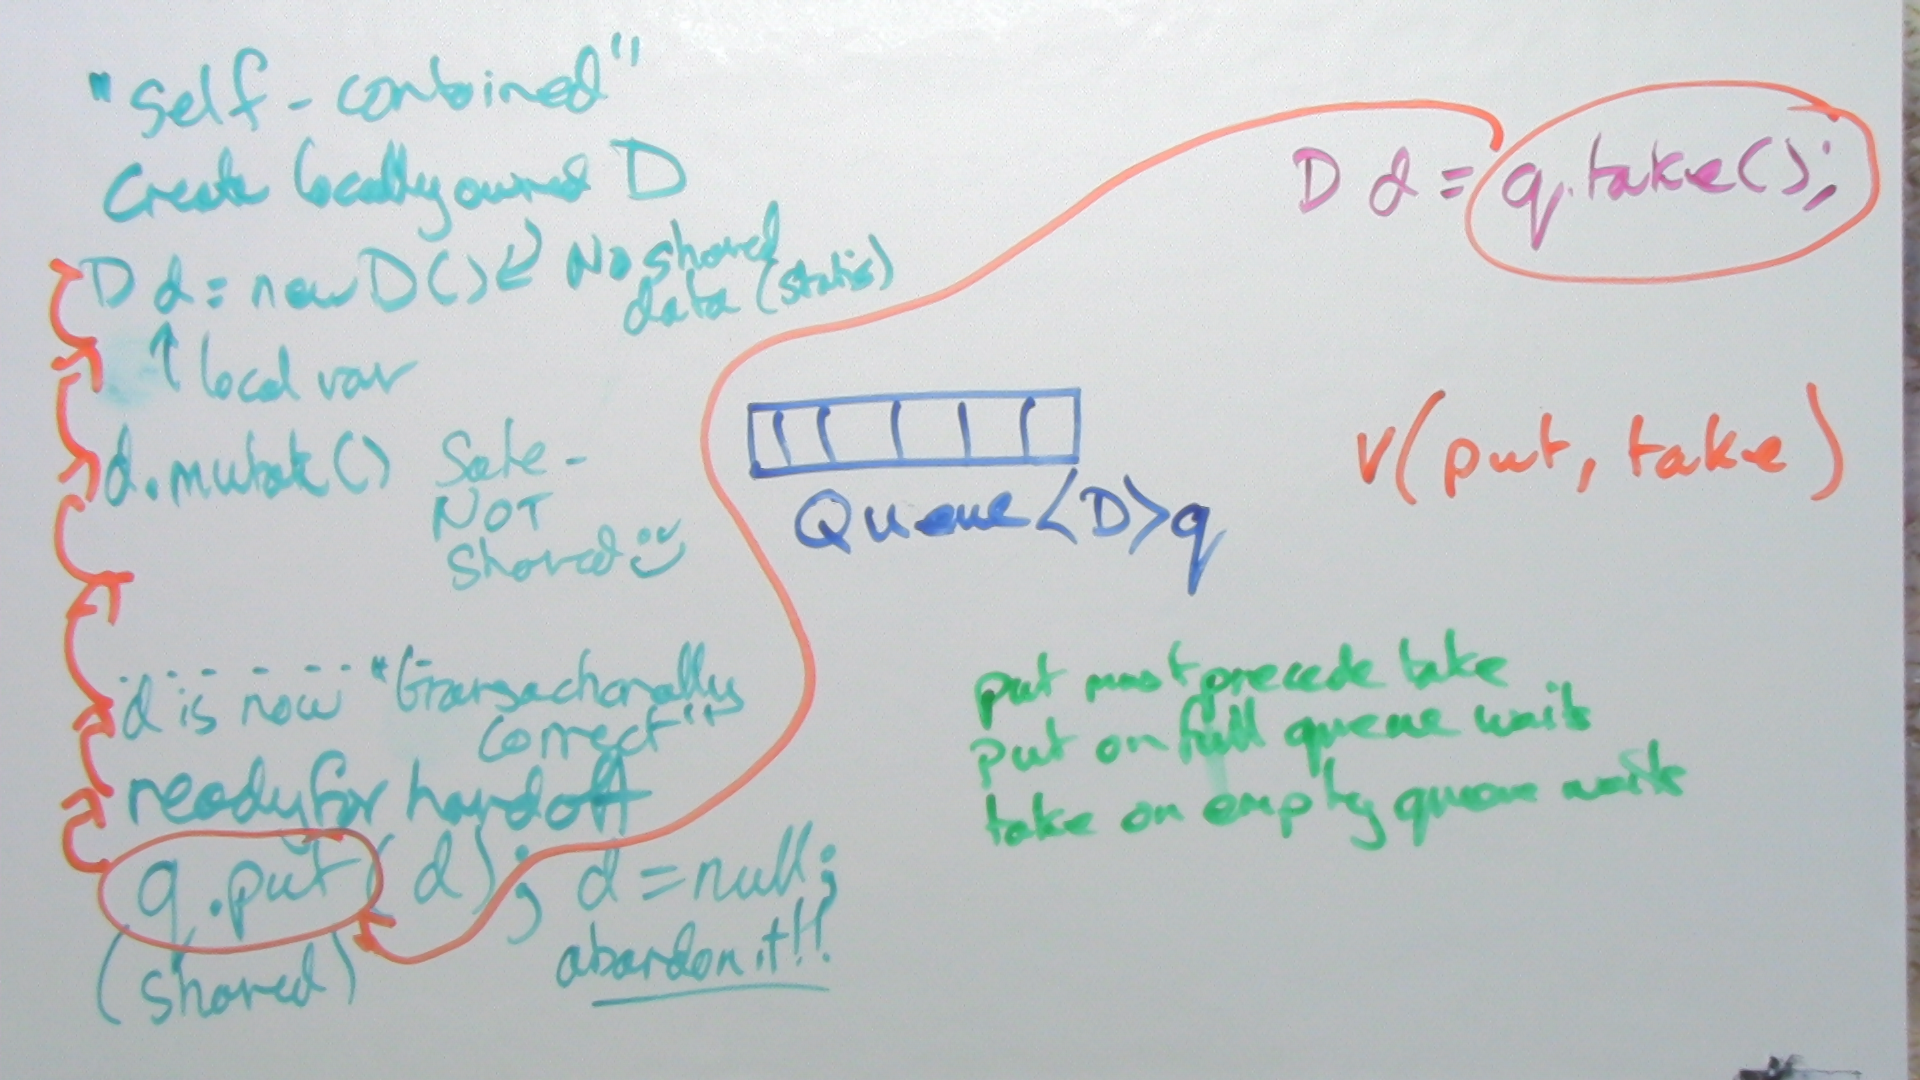 "self-conbined"
Create locally owned D
D d = new D() ↙ No shared
data (static)
↑ local var
d.mutate() Safe -
NOT
Shared
d is now "transactionally
correct"
ready for handoff
q.put(d); d = null;
(shared) abandon it!!
Queue<D> q
D d = q.take();
v(put, take)
put must precede take
put on full queue waits
take on empty queue waits